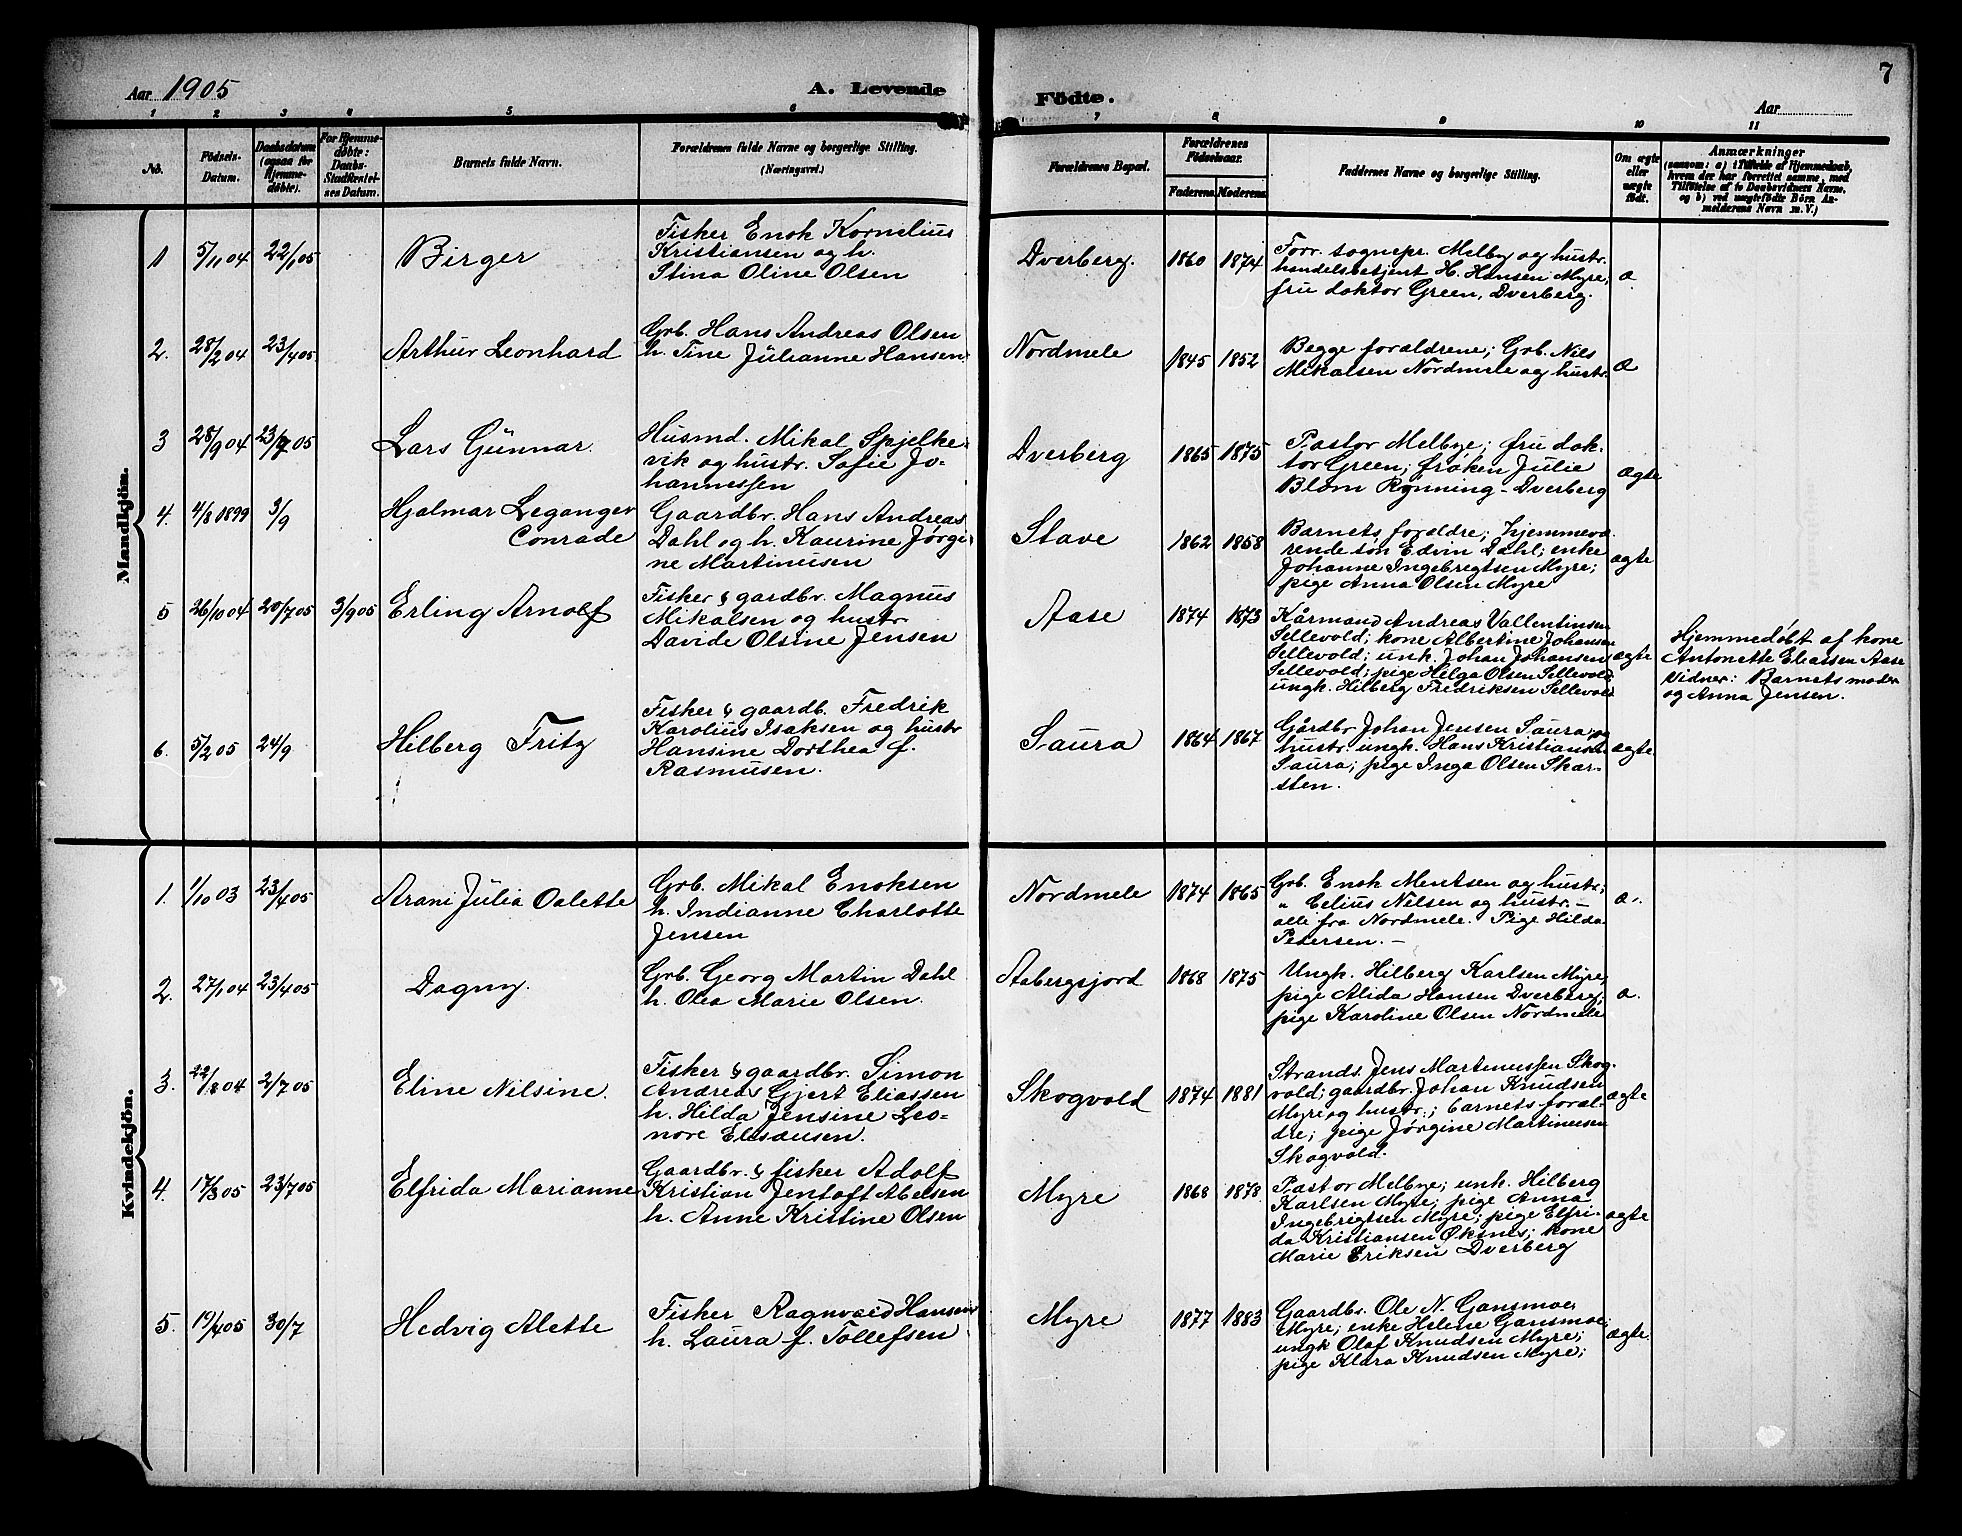 7
Aar 1905
A. Levende
Födte.
Aar
1 2 3 4 5 6 7 8 9 10 11
No.
Födsels-
Datum.
Daabsdatum
(ogsaa for
Hjemme-
döbte).
For Hjemme-
döbte:
Daabs-
Stadfæstel-
ses Datum.
Barnets fulde Navn.
Forældrenes fulde Navne og borgerlige Stilling.
(Næringsvei.)
Forældrenes Bopæl.
Forældrenes
Födselsaar.
Faderens. Moderens.
Faddernes Navne og borgerlige Stilling.
Om ægte
eller
uægte
födt.
Anmærkninger
(saasom: a) i Tilfælde af Hjemmedaab,
hvem der har forrettet samme, med
Tilföielse af to Daabsvidners Navne,
og b) ved uægtefödte Börn An-
melderens Navn m. V.)
Mandkjön.
1 5/11 04 22/1 05 Birger
Fisker Enok Kornelius
Kristiansen og h.
Stina Oline Olsen
Dverberg. 1860 1874
Forr. sognepr. Melby og hustr.
handelsbetjent H. Hansen Myre,
fru doktor Green, Dverberg.
æ
2. 28/2 04 23/4 05 Arthur Leonhard
Grb. Hans Andreas Olsen
h. Tine Julianne Hansen
Nordmele 1845 1852
Begge foraldrene; Grb. Nils
Mikalsen Nordmele og hustr.
æ
3 28/9 04 23/7 05 Lars Gunnar.
Husmd. Mikal Spjelke-
vik og hustr. Sofie Jo-
hannessen
Dverberg 1865 1875
Pastor Melbye; fru dok-
tor Green; frøken Julie
Blom Rønning - Dverberg
ægte
4. 4/8 0899 3/9 Hjalmar Leganger
Conrade
Gaardbr. Hans Andreas
Dahl og h. Kaurine Jørgi-
ne Martinusen
Stave 1862 1858
Barnets foraldre; hjemmevæ-
rende søn Edvin Dahl; enke
Johanne Ingebrigtsen Myre;
pige Anna Olsen Myre
ægte
5 26/10 04 20/7 05 3/9 05 Erling Arnolf
Fisker & gardbr. Magnus
Mikalsen og hustr.
Davide Olsine Jensen
Aase 1874 1873
Kårmand Andreas Vallentinsen
Sellevold; kone Albertine Johansen
Sellevold; unk. Johan Johansen
Sellevold; pige Helga Olsen Sellevold
ungk. Hilberg Fredriksen Sellevold
ægte
Hjemmedøbt af kone
Antonette Eliassen Aase
Vidner: Barnets moder
og Anna Jensen.
6. 5/2 05 24/9 Hilberg Fritz
Fisker & gaardb. Fredrik
Karolius Isaksen og hustr
Hansine Dorthea f.
Rasmusen.
Saura 1864 1867
Gårdbr Johan Jensen Saura og
hustr. ungk. Hans Kristiansen
Saura; pige Inga Olsen Skar-
sten.
ægte
Kvindekjön.
1. 1/10 03 23/4 05 Arani Julia Oalette
Grb. Mikal Enoksen
h. Indianne Charlotte
Jensen
Nordmele 1874 1865
Grb. Enok Mentsen og hustr;
" Celius Nilsen og hustr. -
alle fra Nordmele. Pige Hilda
Pedersen. -
æ.
2. 27/1 04 23/4 05 Dagny.
Grb. Georg Martin Dahl
h. Olea Marie Olsen.
Aabergsjord 1868 1875
Ungk. Hilberg Karlsen Myre;
pige Alida Hansen Dverberg;
pige Karoline Olsen Nordmele
æ.
3. 22/8 04 2/7 05 Eline Nilsine.
Fisker & gaardbr. Simon
Andreas Gjert Eliassen
h. Hilda Jensine Leo-
nore Elisæusen.
Skogvold 1874 1881
Strands. Jens Martinussen Skog-
vold; gaardbr. Johan Knudsen
Myre og hustr.; barnets foral-
dre; pige Jørgine Martinusen
Skogvold.
ægte
4. 17/3 05 23/7 05 Elfrida Marianne
Gaardbr. & fisker Adolf
Kristian Jentoft Abelsen
h. Anne Kristine Olsen
Myre 1868 1878.
Pastor Melbye; unk. Hilberg
Karlsen Myre; pige Anna
Ingebrigtsen Myre; pige Elfri-
da Kristiansen Øksnes; kone
Marie Eriksen Dverberg
ægte
5. 19/4 05 30/7 Hedvig Alette
Fisker Ragnvald Hansen
h. Laura f. Tollefsen
Myre 1877 1883
Gaardbr. Ole N. Gansmoe,
Myre; enke Helene Gansmoe;
ungk Olaf Knudsen Myre;
pige Klara Knudsen Myre;
ægte.